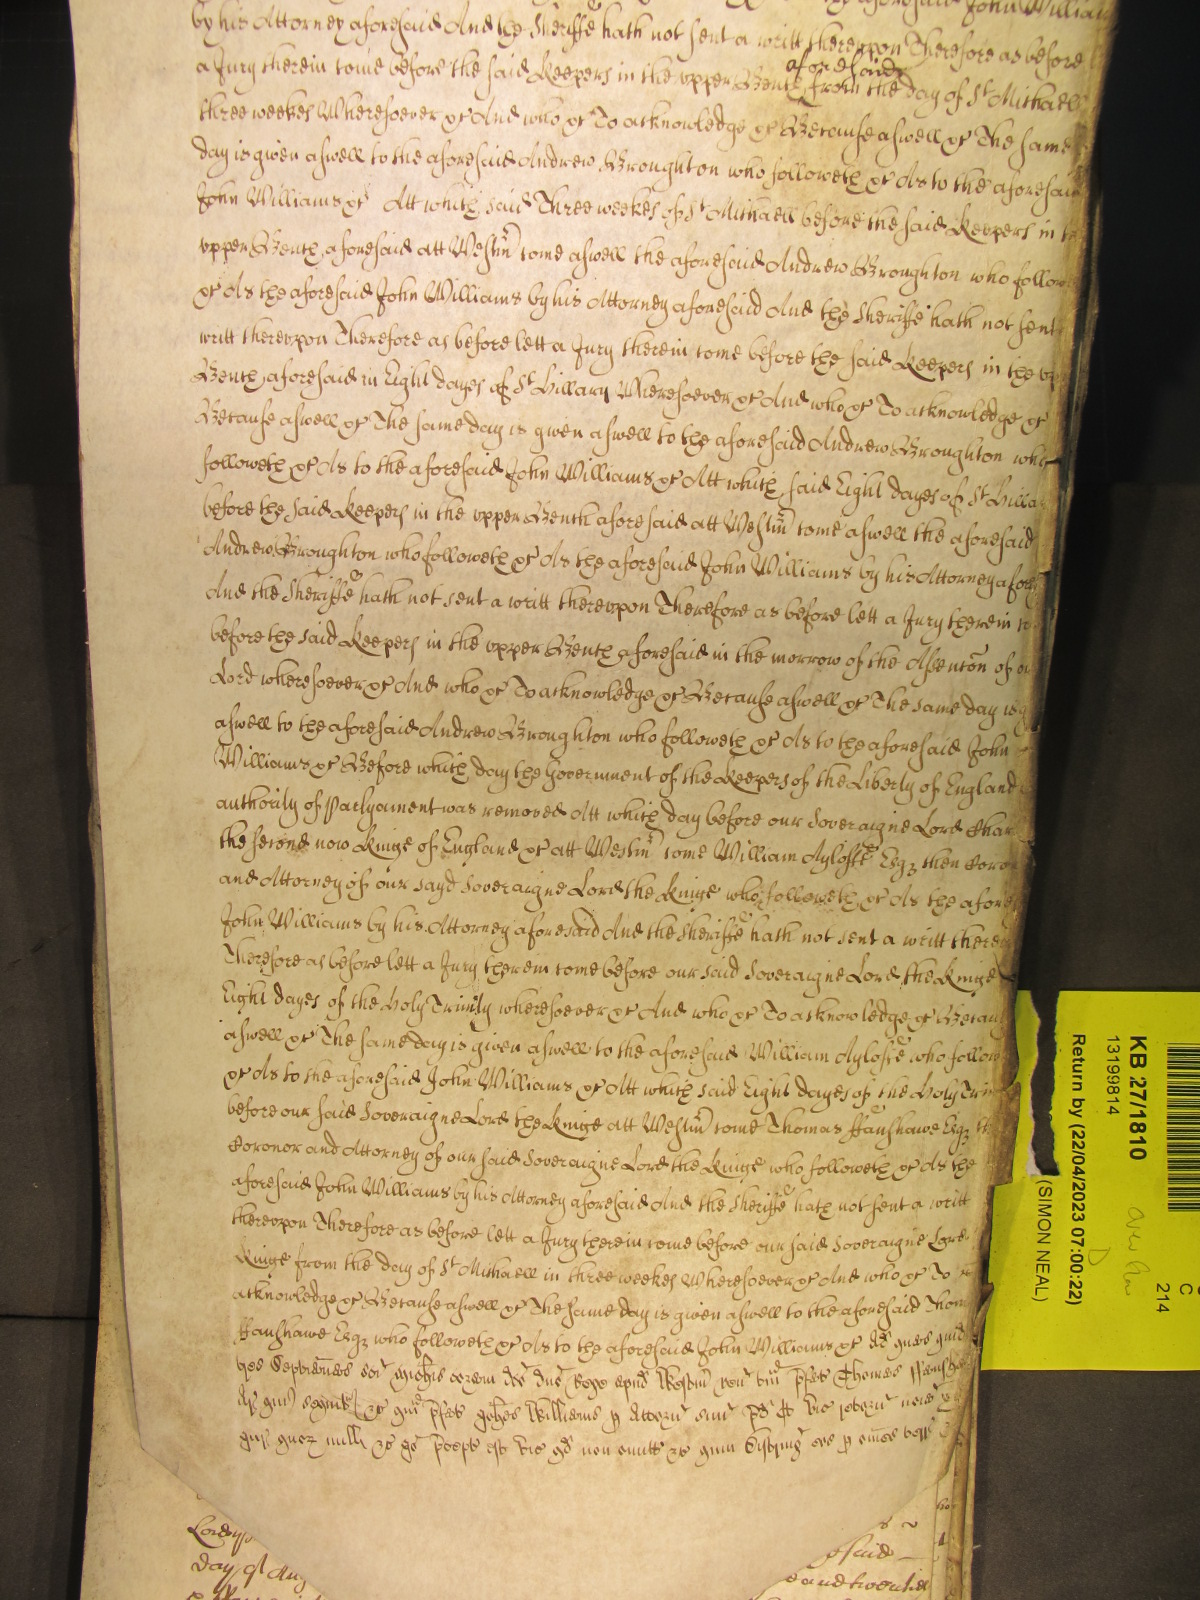 aforesaid John William
by his Attorney aforesaid And the Sheriffe hath not sent a writt therevpon Therefore as before
aforesaid
a Jury therein come before the said Keepers in the vpper Bench from the day of St Michaell
three weekes Wheresoever &c And who &c To acknowledge &c Because aswell &c The same
day is given aswell to the aforesaid Andrew Broughton who followeth &c As to the aforesaid
John Williams &c Att which said Three weekes of St Michaell before the said Keepers in th
vpper Bench aforesaid att Westm̃ come aswell the aforesaid Andrew Broughton who follow
&c As the aforesaid John Williams by his Attorney aforesaid And the Sheriffe hath not sent
writt therevpon Therefore as before lett a Jury therein come before the said Keepers in the vp
Bench aforesaid in Eight dayes of St Hillary Wheresoever &c And who &c To acknowledge &c
Because aswell &c The same day is given aswell to the aforesaid Andrew Broughton who
followeth &c As to the aforesaid John Williams &c Att which said Eight dayes of St Hilla
before the said Keepers in the vpper Bench aforesaid att Westm̃ come aswell the aforesaid
Andrew Broughton who followeth &c As the aforesaid John Williams by his Attorney afores
And the Sheriffe hath not sent a writt therevpon Therefore as before lett a Jury therein co
before the said Keepers in the vpper Bench aforesaid in the morrow of the Ascencõn of o
Lord wheresoever &c And who &c To acknowledge &c Because aswell &c The same day is g
aswell to the aforesaid Andrew Broughton who followeth &c As to the aforesaid John
Williams &c Before which day the Government of the Keepers of the Liberty of England
authority of Parlyament was removed Att which day before our Soveraigne Lord Char
the second now Kinge of England &c att Westm̃ come William Ayloffe Esqz then Coron
and Attorney of our sayd Soveraigne Lord the Kinge who followeth &c As the afore
John Williams by his Attorney aforesaid And the Sheriffe hath not sent a writt therev
Therefore as before lett a Jury therein come before our said Soveraigne Lord the Kinge
Eight dayes of the Holy Trinity wheresoever &c And who &c To acknowledge &c Becaus
aswell &c The same day is given aswell to the aforesaid William Ayloffe who follow
&c As to the aforesaid John Williams &c Att which said Eight dayes of the Holy Trin
before our said Soveraigne Lord the Kinge att Westm̃ come Thomas Fanshawe Esqz th
Coronor and Attorney of our said Soveraigne Lord the Kinge who followeth &c As the
aforesaid John Williams by his Attorney aforesaid And the Sheriffe hath not sent a writt
therevpon Therefore as before lett a Jury therein come before our said Soveraigne Lord
Kinge from the day of St Michaell in three weekes Wheresoever &c And who &c To
acknowledge &c Because aswell &c The same day is given aswell to the aforesaid Thom
Fanshawe Esqz who followeth &c As to the aforesaid John Williams &c
Thomas Fansh
Williams
Lord
day of Aug
said
and twentie
KB 27/1810
13199814
Return by (22/04/2023 07:00:22)
(SIMON NEAL)
C
214
D